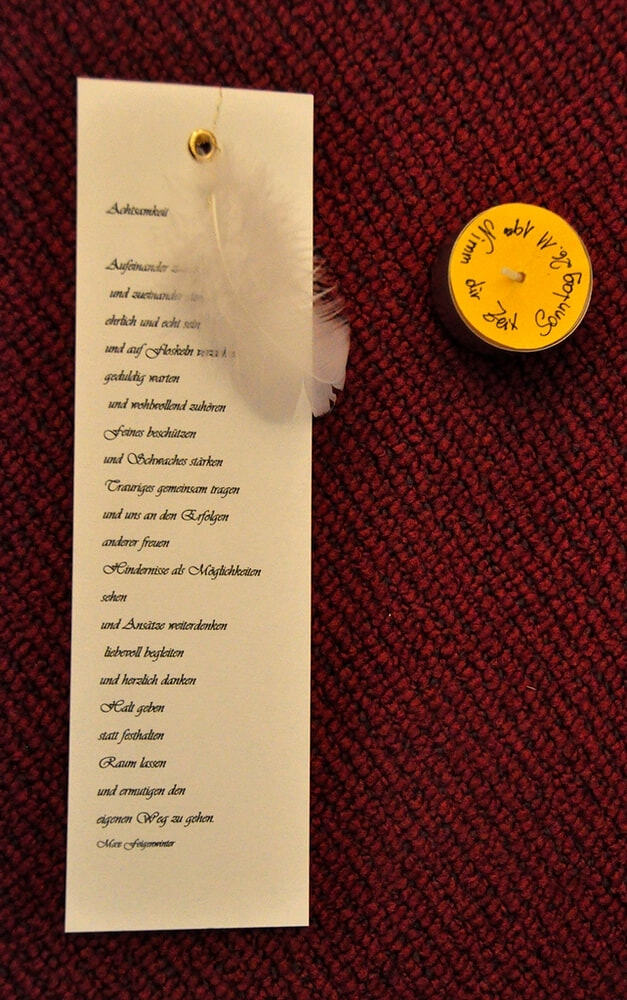 Achtsamkeit
Aufeinander
und zueinander
ehrlich und echt sein
und auf Floskeln
geduldig warten
und wohlwollend zuhören
Feines beschützen
und Schwaches stärken
Trauriges gemeinsam tragen
und uns an den Erfolgen
anderer freuen
Hindernisse als Möglichkeiten
sehen
und Ansätze weiterdenken
liebevoll begleiten
und herzlich danken
Halt geben
statt festhalten
Raum lassen
und ermutigen den
eigenen Weg zu gehen.
Max Feigenwinter
Nimm dir Zeit
Sonntag 26.11